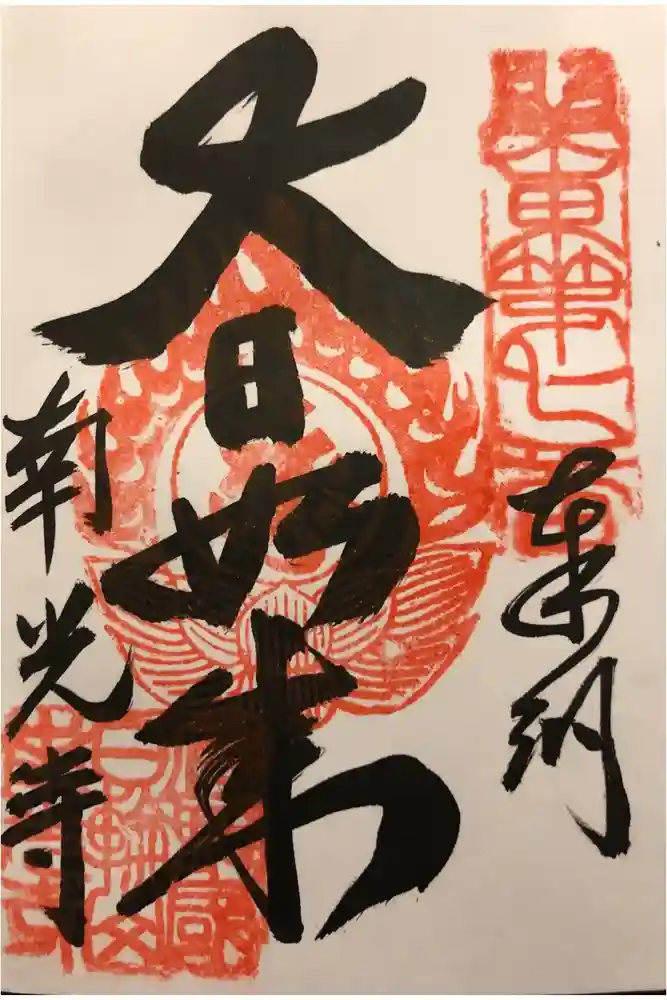 關東第七番
奉納
大日如来
南光寺